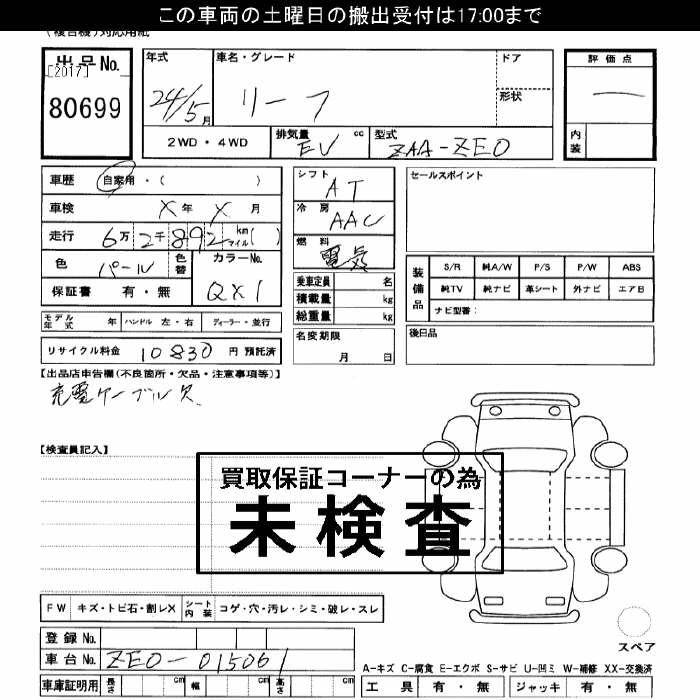 この車両の土曜日の搬出受付は17:00まで
(複合機)対応用紙
出品No.
[2017]
80699
年式
24/5月
車名・グレード
リーフ
ドア
形状
評価点
—
内装
2WD・4WD
排気量 EV cc
型式 ZAA-ZE0
車歴 自家用・( )
車検 X年 X月
走行 6万2千892 km マイル( )
色 パール 色替
カラーNo. QX1
保証書 有・無
シフト AT
冷房 AAC
燃料 電気
乗車定員 名
積載量 kg
総重量 kg
セールスポイント
装備品
S/R 純A/W P/S P/W ABS
純TV 純ナビ 革シート 外ナビ エアB
ナビ型番:
モデル年式 年 ハンドル 左・右 ディーラー・並行
名変期限 月 日
後日品
リサイクル料金 10830 円 預託済
【出品店申告欄(不良箇所・欠品・注意事項等)】
充電ケーブル欠
【検査員記入】
買取保証コーナーの為
未検査
FW キズ・トビ石・割レX シート内装 コゲ・穴・汚レ・シミ・破レ・スレ
スペア
登録No.
車台No. ZE0-015061
A-キズ C-腐食 E-エクボ S-サビ U-凹ミ W-補修 XX-交換済
車庫証明用 長さ cm 幅 cm 高さ cm
工具 有・無 ジャッキ 有・無